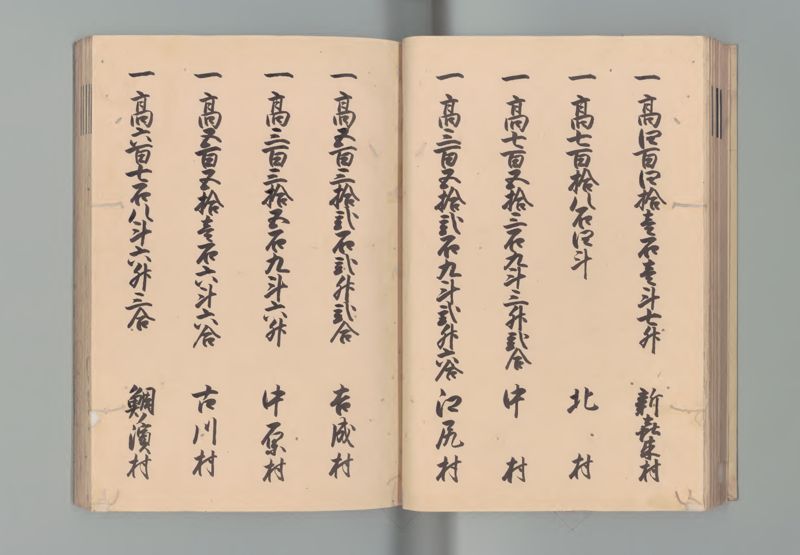 一 高四百四拾壱石壱斗七升 新喜来村
一 高七百拾八石四斗 北村
一 高七百五拾三石九斗三升弐合 中村
一 高三百五拾弐石九斗弐升六合 江尻村
一 高五百三拾弐石弐升弐合 吉成村
一 高三百三拾五石九斗六升 中原村
一 高五百五拾壱石六斗六合 古川村
一 高六百七石八斗六升三合 鯛濱村